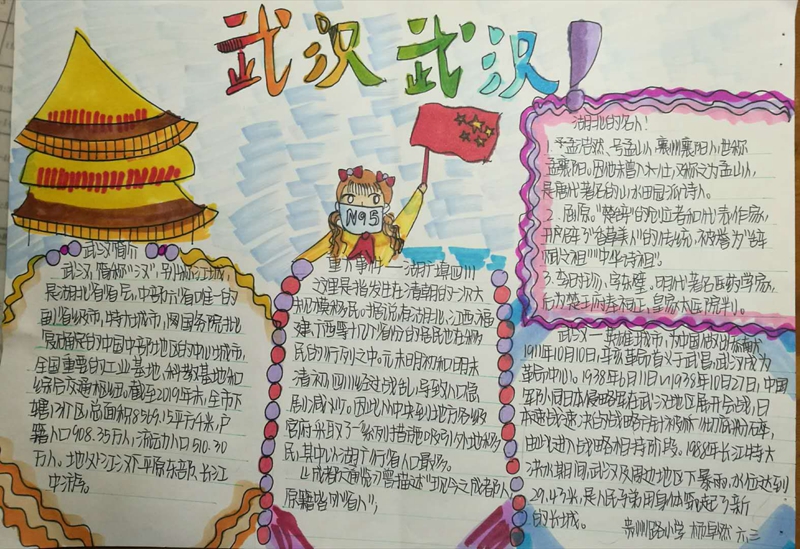 武汉武汉！
N95
武汉简介
武汉,简称"汉",别称江城,
是湖北省省会,中部六省唯一的
副省级城市,特大城市,国务院批
复确定的中国中部地区的中心城市,
全国重要的工业基地、科教基地和
综合交通枢纽。截至2019年末,全市下
辖13个区,总面积8569.15平方千米,户
籍人口908.35万人,流动人口510.30
万人。地处江汉平原东部、长江
中游。
重大事件——湖广填四川
这里是指发生在清朝的一次大
规模移民。据说有湖北、江西、福
建、广西等十几个省份的居民在移
民的行列之中。元末明初和明末
清初,四川经过战乱,导致人口急
剧减少。因此从中央到地方各级
官府采取了一系列措施吸引外地移
民,其中以湖广行省人口最多。
《成都通览》曾描述"现今之成都人,
原籍皆外省人";
湖北的名人!
1.孟浩然、号孟山人,襄州襄阳人,世称
孟襄阳。因他未曾入仕,又称之为孟山人,
是唐代著名的山水田园派诗人。
2.屈原。"楚辞"的创立者和代表作家,
开辟了"香草美人"的传统,被誉为"辞
赋之祖""中华诗祖"。
3.李时珍,字东璧。明代著名医药学家,
后为楚王府奉祠正,皇家太医院判。
武汉——英雄城市,为中国做出贡献
1911年10月10日,辛亥革命首义于武昌,武汉成为
革命中心。1938年6月11日~1938年10月27日,中国
军队同日本侵略军在武汉地区展开会战,日
本速战速决的战略方针被
由此进入战略相持阶段。1988年长江特大
洪水期间,武汉及周边地区下暴雨,水位达到
29.43米,是人民子弟用身体筑起了新
的长城。
贵州路小学 杨卓然 六、三